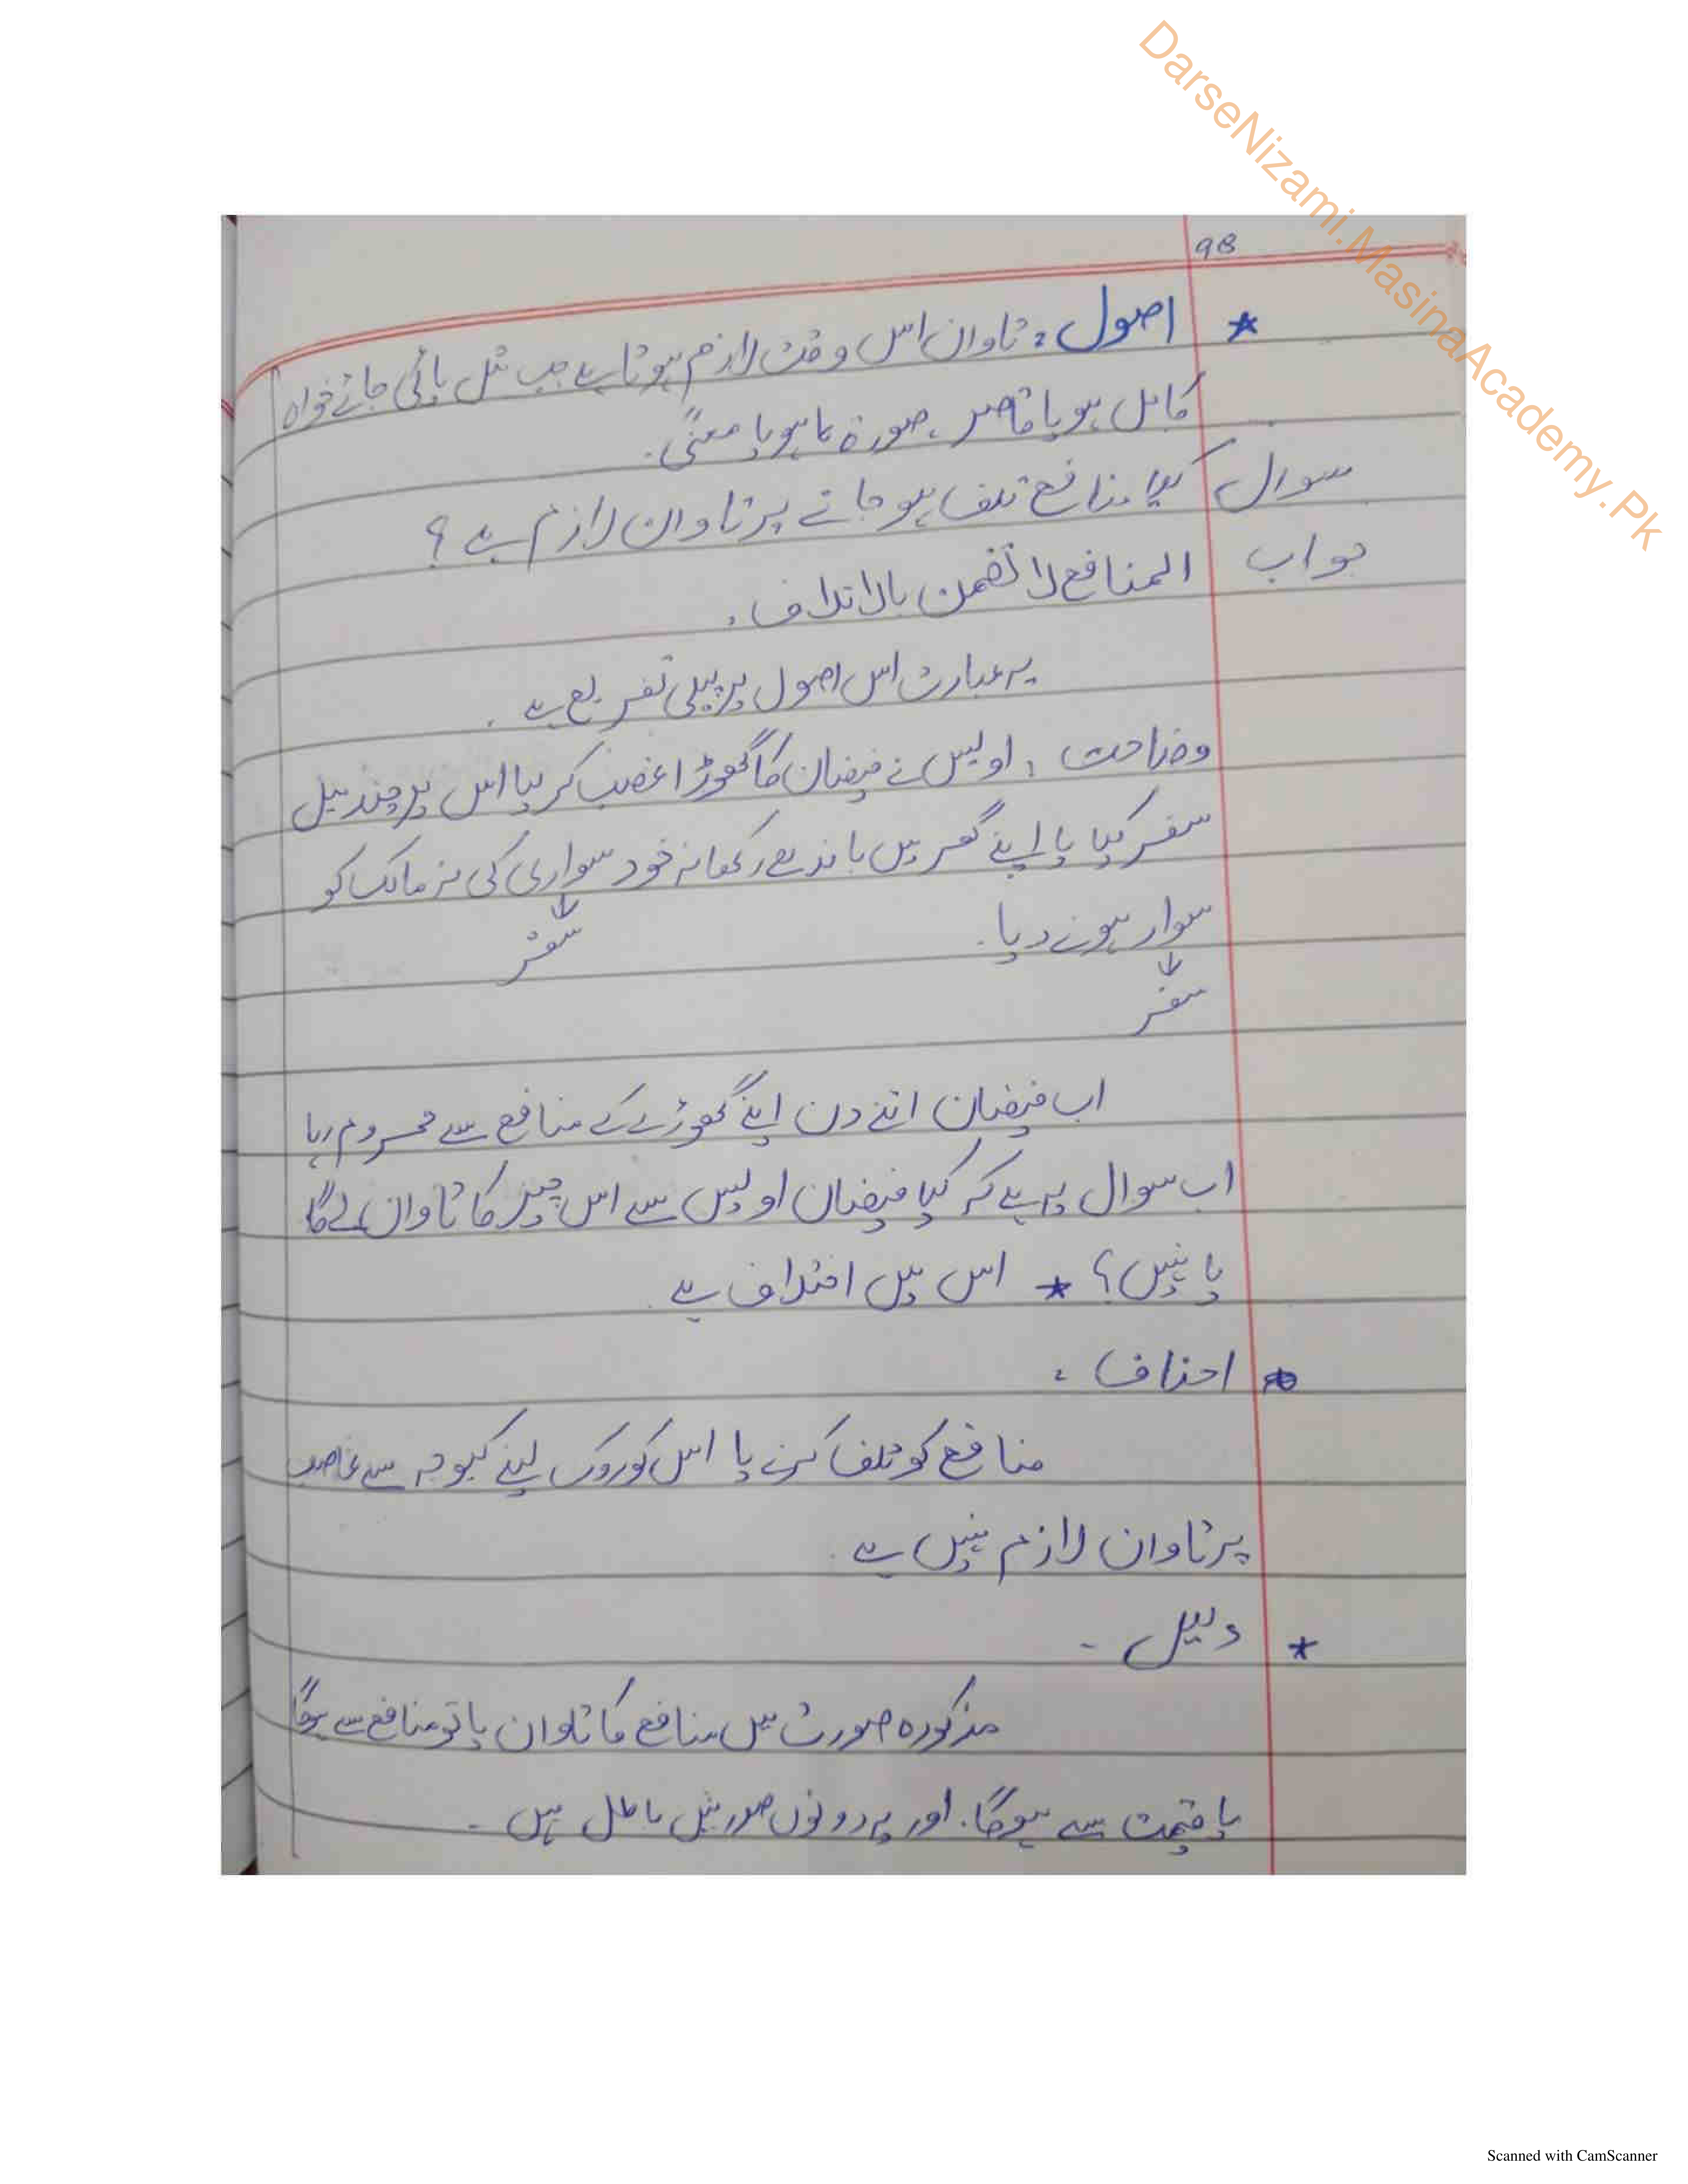 DarseNizami.MasinaAcademy.Pk
98
★ اصول : تاوان اس وقت لازم ہوتا ہے جب مثل پائی جائے خواہ
کامل ہو یا قاصر، صورۃ ہو یا معنًی۔
سوال کیا منافع تلف ہو جانے پر تاوان لازم ہے ؟
جواب المنافع لا تضمن بالاتلاف۔
یہ عبارت اس اصول پر پہلی تفریع ہے ۔
وضاحت : اویس نے فیضان کا گھوڑا غصب کر لیا اس پر چند میل
سفر کیا یا اپنے گھر میں باندھے رکھا نہ خود سواری کی نہ مالک کو
سوار ہونے دیا ۔
↓ سفر
↓
سفر
اب فیضان اتنے دن اپنے گھوڑے کے منافع سے محروم رہا
اب سوال یہ ہے کہ کیا فیضان اویس سے اس چیز کا تاوان لے گا
یا نہیں؟ ★ اس میں اختلاف ہے
★ احناف :
منافع کو تلف کرنے یا اس کو روک لینے کیوجہ سے غاصب
پر تاوان لازم نہیں ہے ۔
★ دلیل ۔
مذکورہ صورت میں منافع کا تاوان یا تو منافع سے ہوگا
یا قیمت سے ہوگا۔ اور یہ دونوں صورتیں باطل ہیں ۔
Scanned with CamScanner